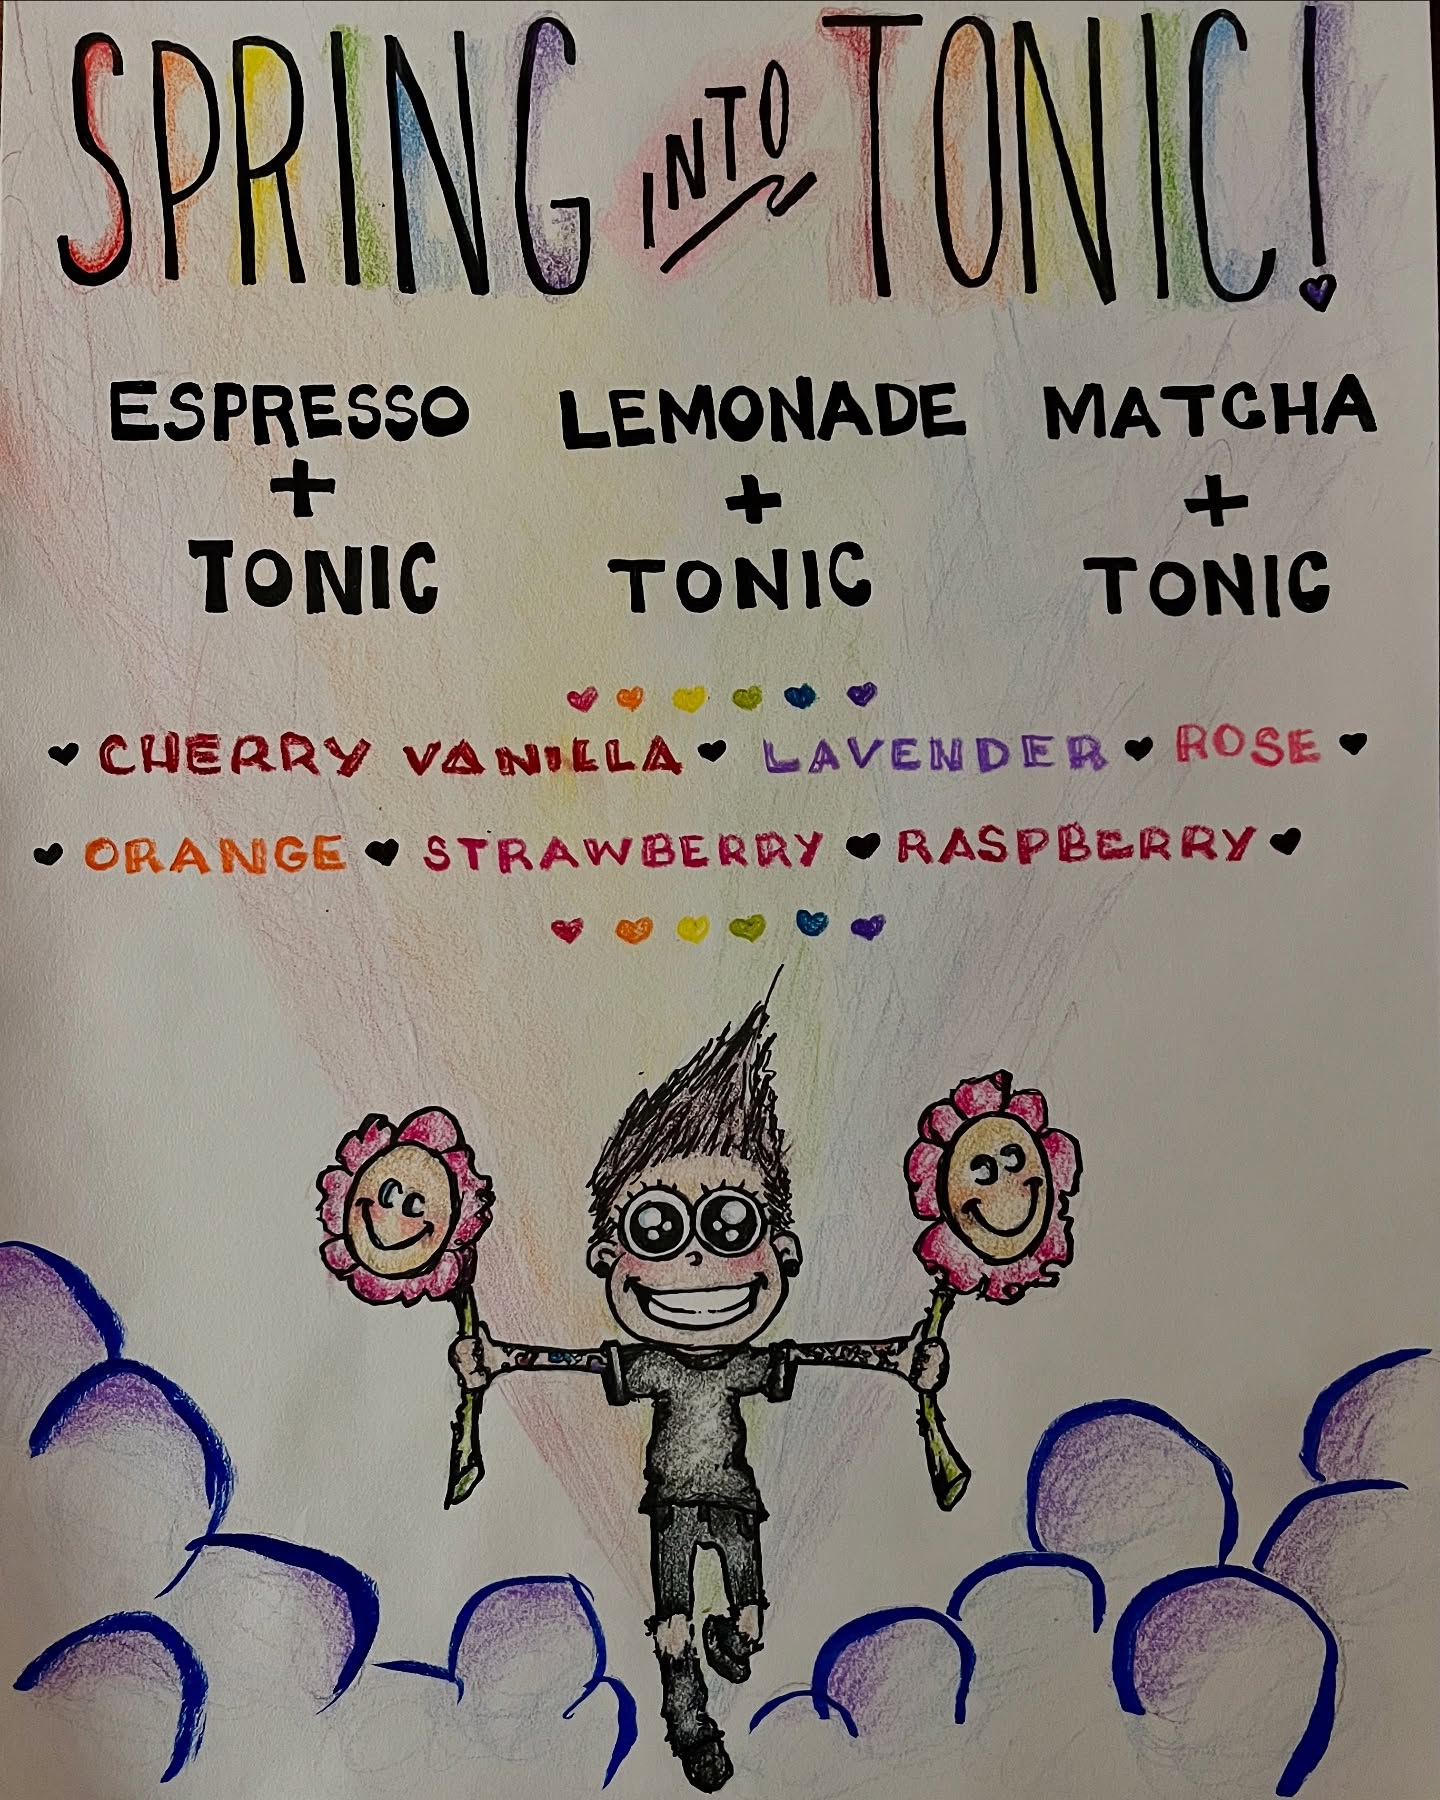 SPRING INTO TONIC!
ESPRESSO + TONIC
LEMONADE + TONIC
MATCHA + TONIC
CHERRY VANILLA LAVENDER ROSE
ORANGE STRAWBERRY RASPBERRY